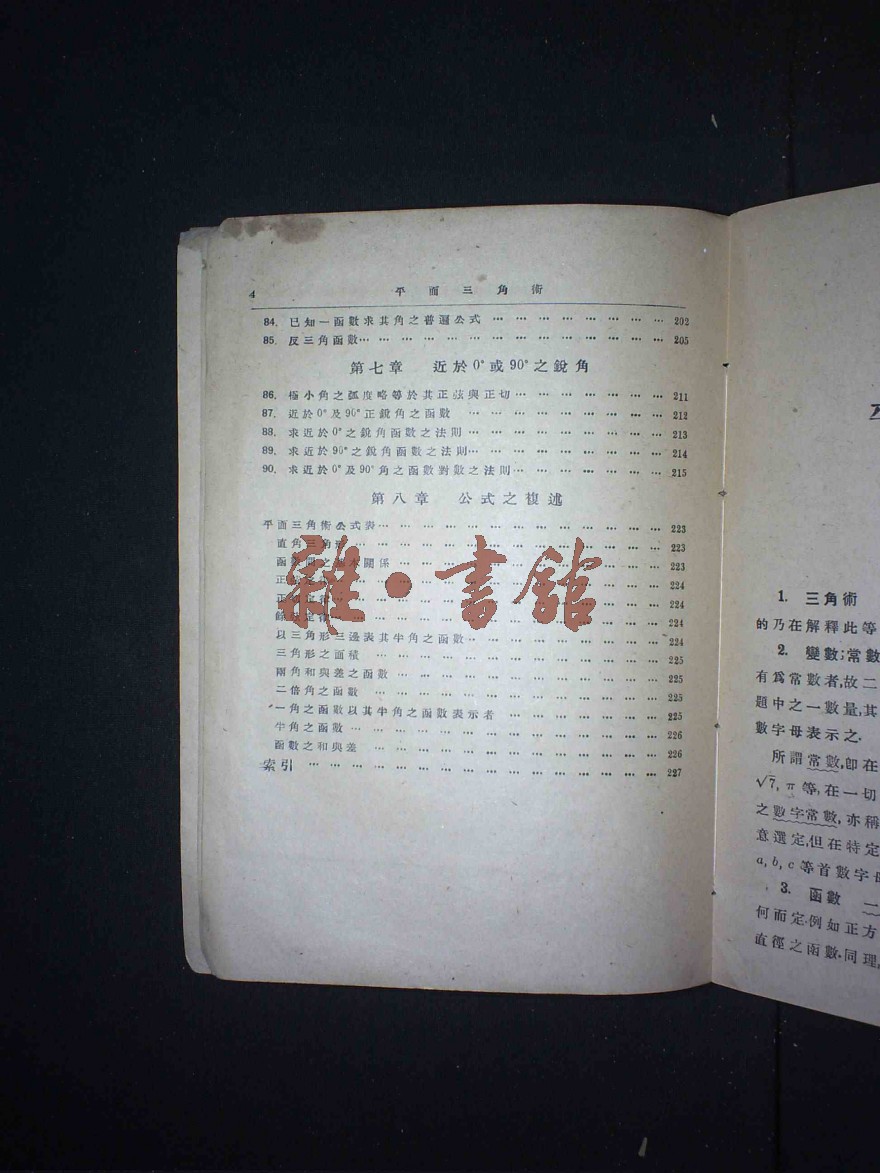 4 平面三角術
84. 已知一函數求其角之普遍公式 … … … … … … … … 202
85. 反三角函數… … … … … … … … … … … … … 205
第七章 近於0°或90°之銳角
86. 極小角之弧度略等於其正弦與正切… … … … … … … 211
87. 近於0°及90°正銳角之函數 … … … … … … … … … 212
88. 求近於0°之銳角函數之法則… … … … … … … … … 213
89. 求近於90°之銳角函數之法則… … … … … … … … … 214
90. 求近於0°及90°角之函數對數之法則… … … … … … … 215
第八章 公式之複述
平面三角術公式表… … … … … … … … … … … … … 223
直角三角形… … … … … … … … … … … … … … 223
函數間之基本關係 … … … … … … … … … … … … 223
正 … … … … … … … … … … … … 224
正 定律 … … … … … … … … … … … … 224
餘弦定律 … … … … … … … … … … … …
以三角形三邊表其半角之函數… … … … … … … … … 224
三角形之面積 … … … … … … … … … … … … … 225
兩角和與差之函數 … … … … … … … … … … … … 225
二倍角之函數 … … … … … … … … … … … … … 225
一角之函數以其半角之函數表示者 … … … … … … … 225
半角之函數… … … … … … … … … … … … … … 226
函數之和與差 … … … … … … … … … … … … … 226
索引 … … … … … … … … … … … … … … … … 227
雜·書館
1. 三角術
的乃在解釋此等
2. 變數;常數
有爲常數者,故二
題中之一數量,其
數字母表示之.
所謂常數,卽在
√7, π等,在一切
之數字常數,亦稱
意選定,但在特定
a, b, c等首數字母
3. 函數 一
何而定.例如正方
直徑之函數.同理,